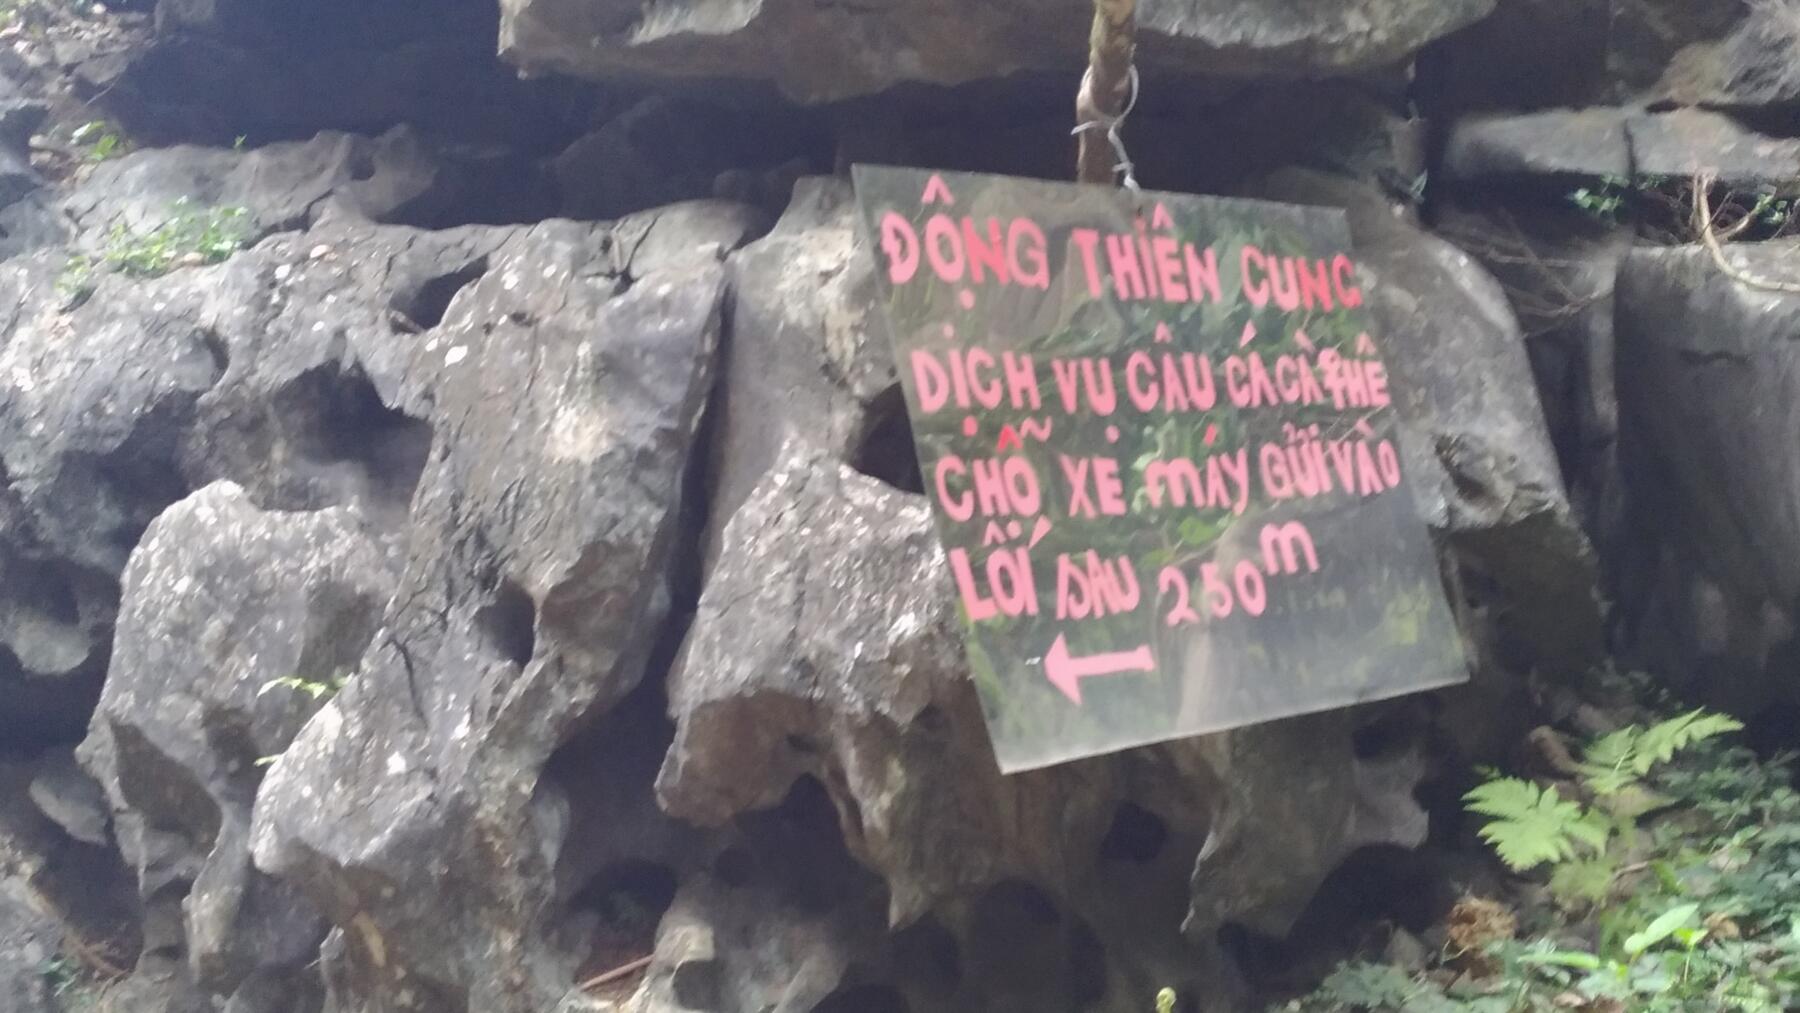 ĐỘNG THIÊN CUNG
DỊCH VỤ CÂU CÁ CÀ PHÊ
CHỖ XE MÁY GỬI VÀO
LỐI SAU 250m